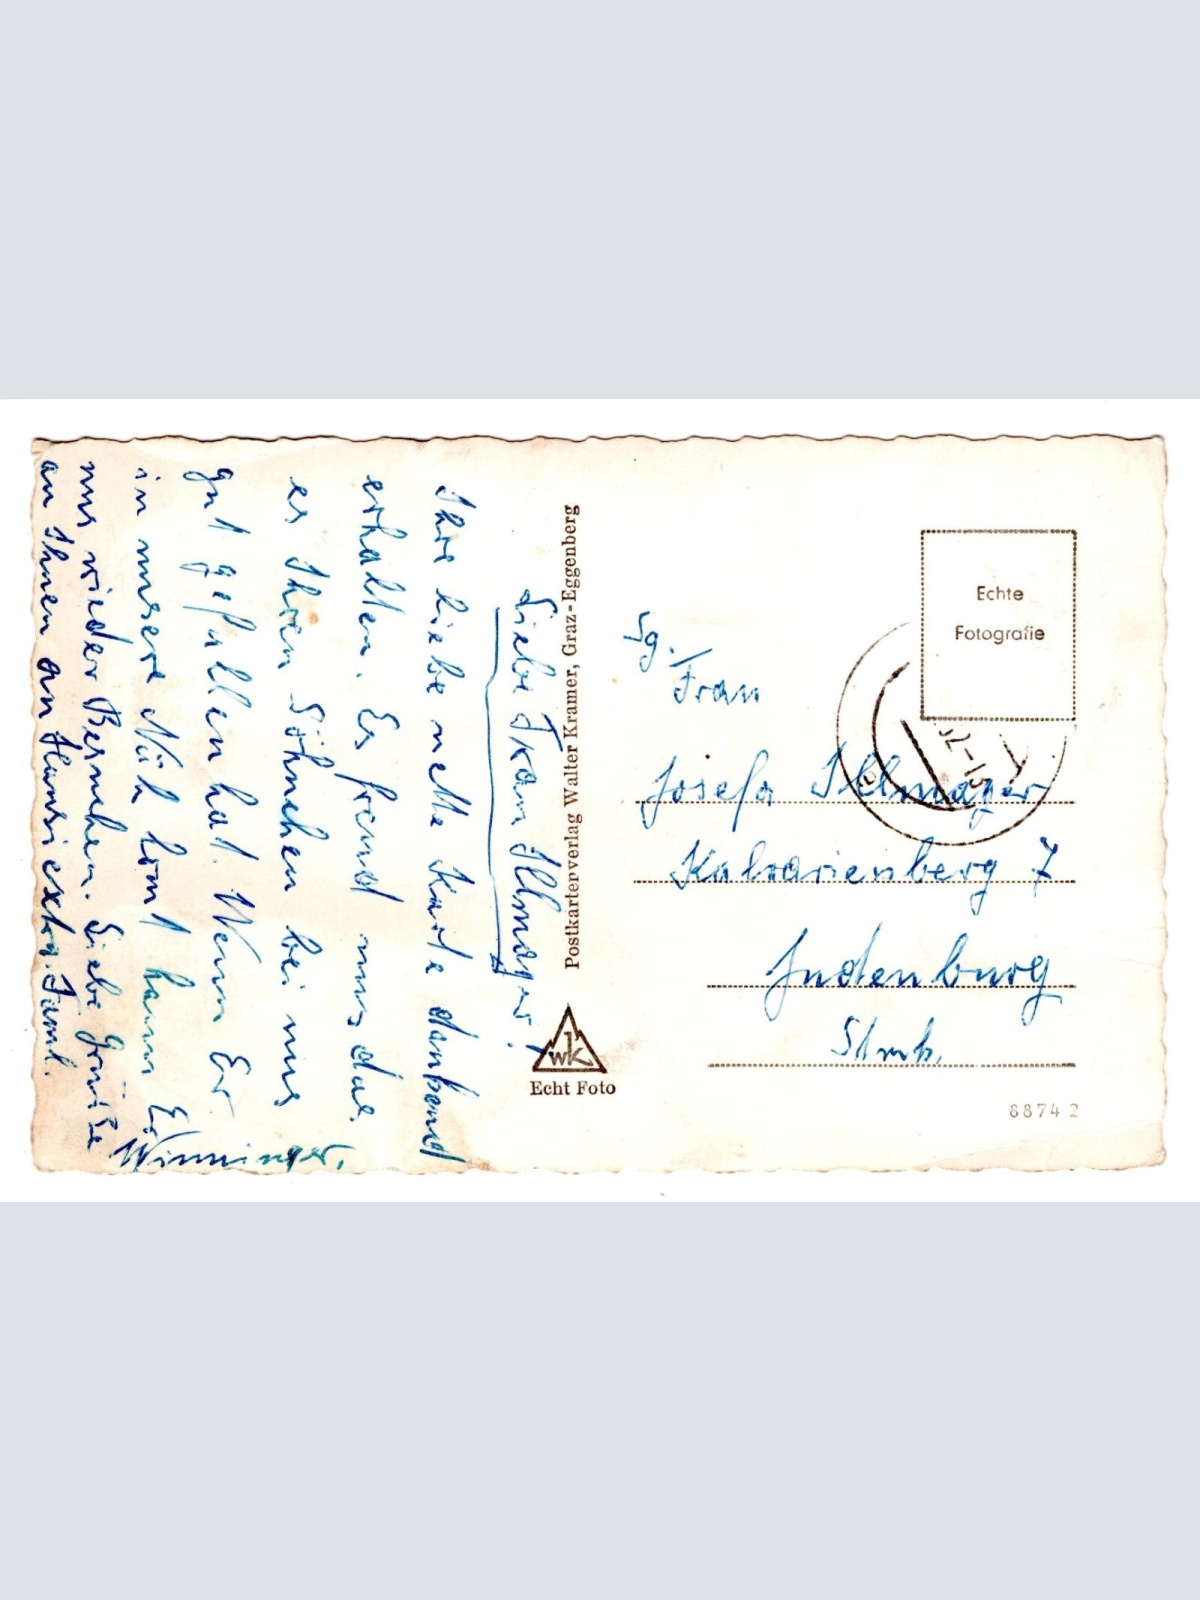 Liebe Frau Illmayer!
Ihre liebe nette Karte dankend
erhalten. Es freut uns das
es Ihren Söhnchen bei uns
gut gefallen hat. Wenn Er
in unsere Näh komt kann Er
uns wieder Besuchen. Liebe Grüße
an Ihnen an Hansi extra. Faml.
Winninger.
Postkartenverlag Walter Kramer, Graz-Eggenberg
wk
Echt Foto
Echte
Fotografie
Frau
Josefa Illmayer
Kalvarienberg 7
Judenburg
Stmk.
8874 2